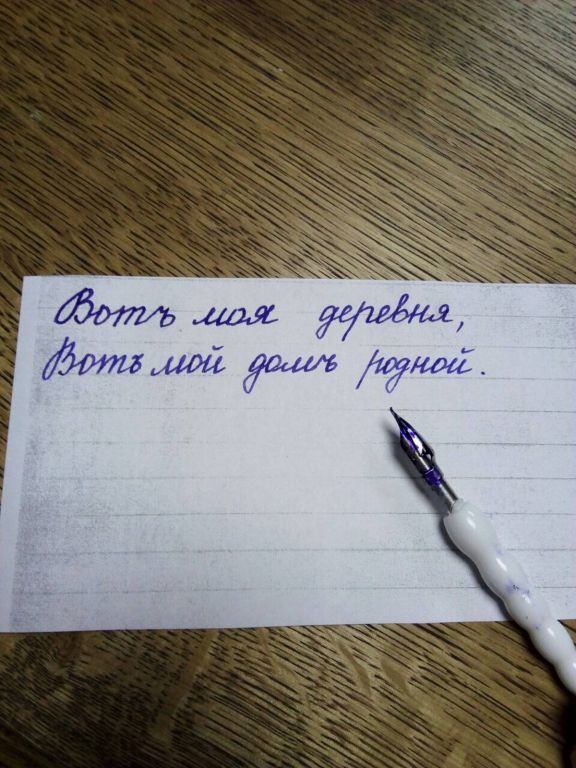 Вотъ моя деревня,
Вотъ мой домъ родной.